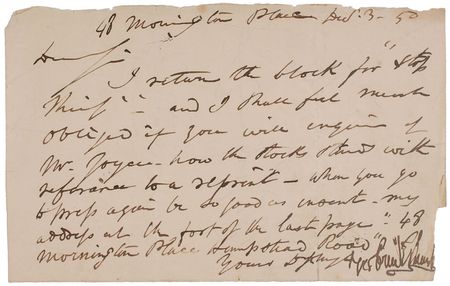 48 Mornington Place Decr. 3 - 50
Dear Sir
I return the block for "Stop
Thief" - and I shall feel much
obliged if you will enquire of
Mr. Joyce - how the stocks stand with
reference to a reprint - when you go
to press again be so good as insert - my
address at the foot of the last page - "48
Mornington Place Hampstead Road"
Yours